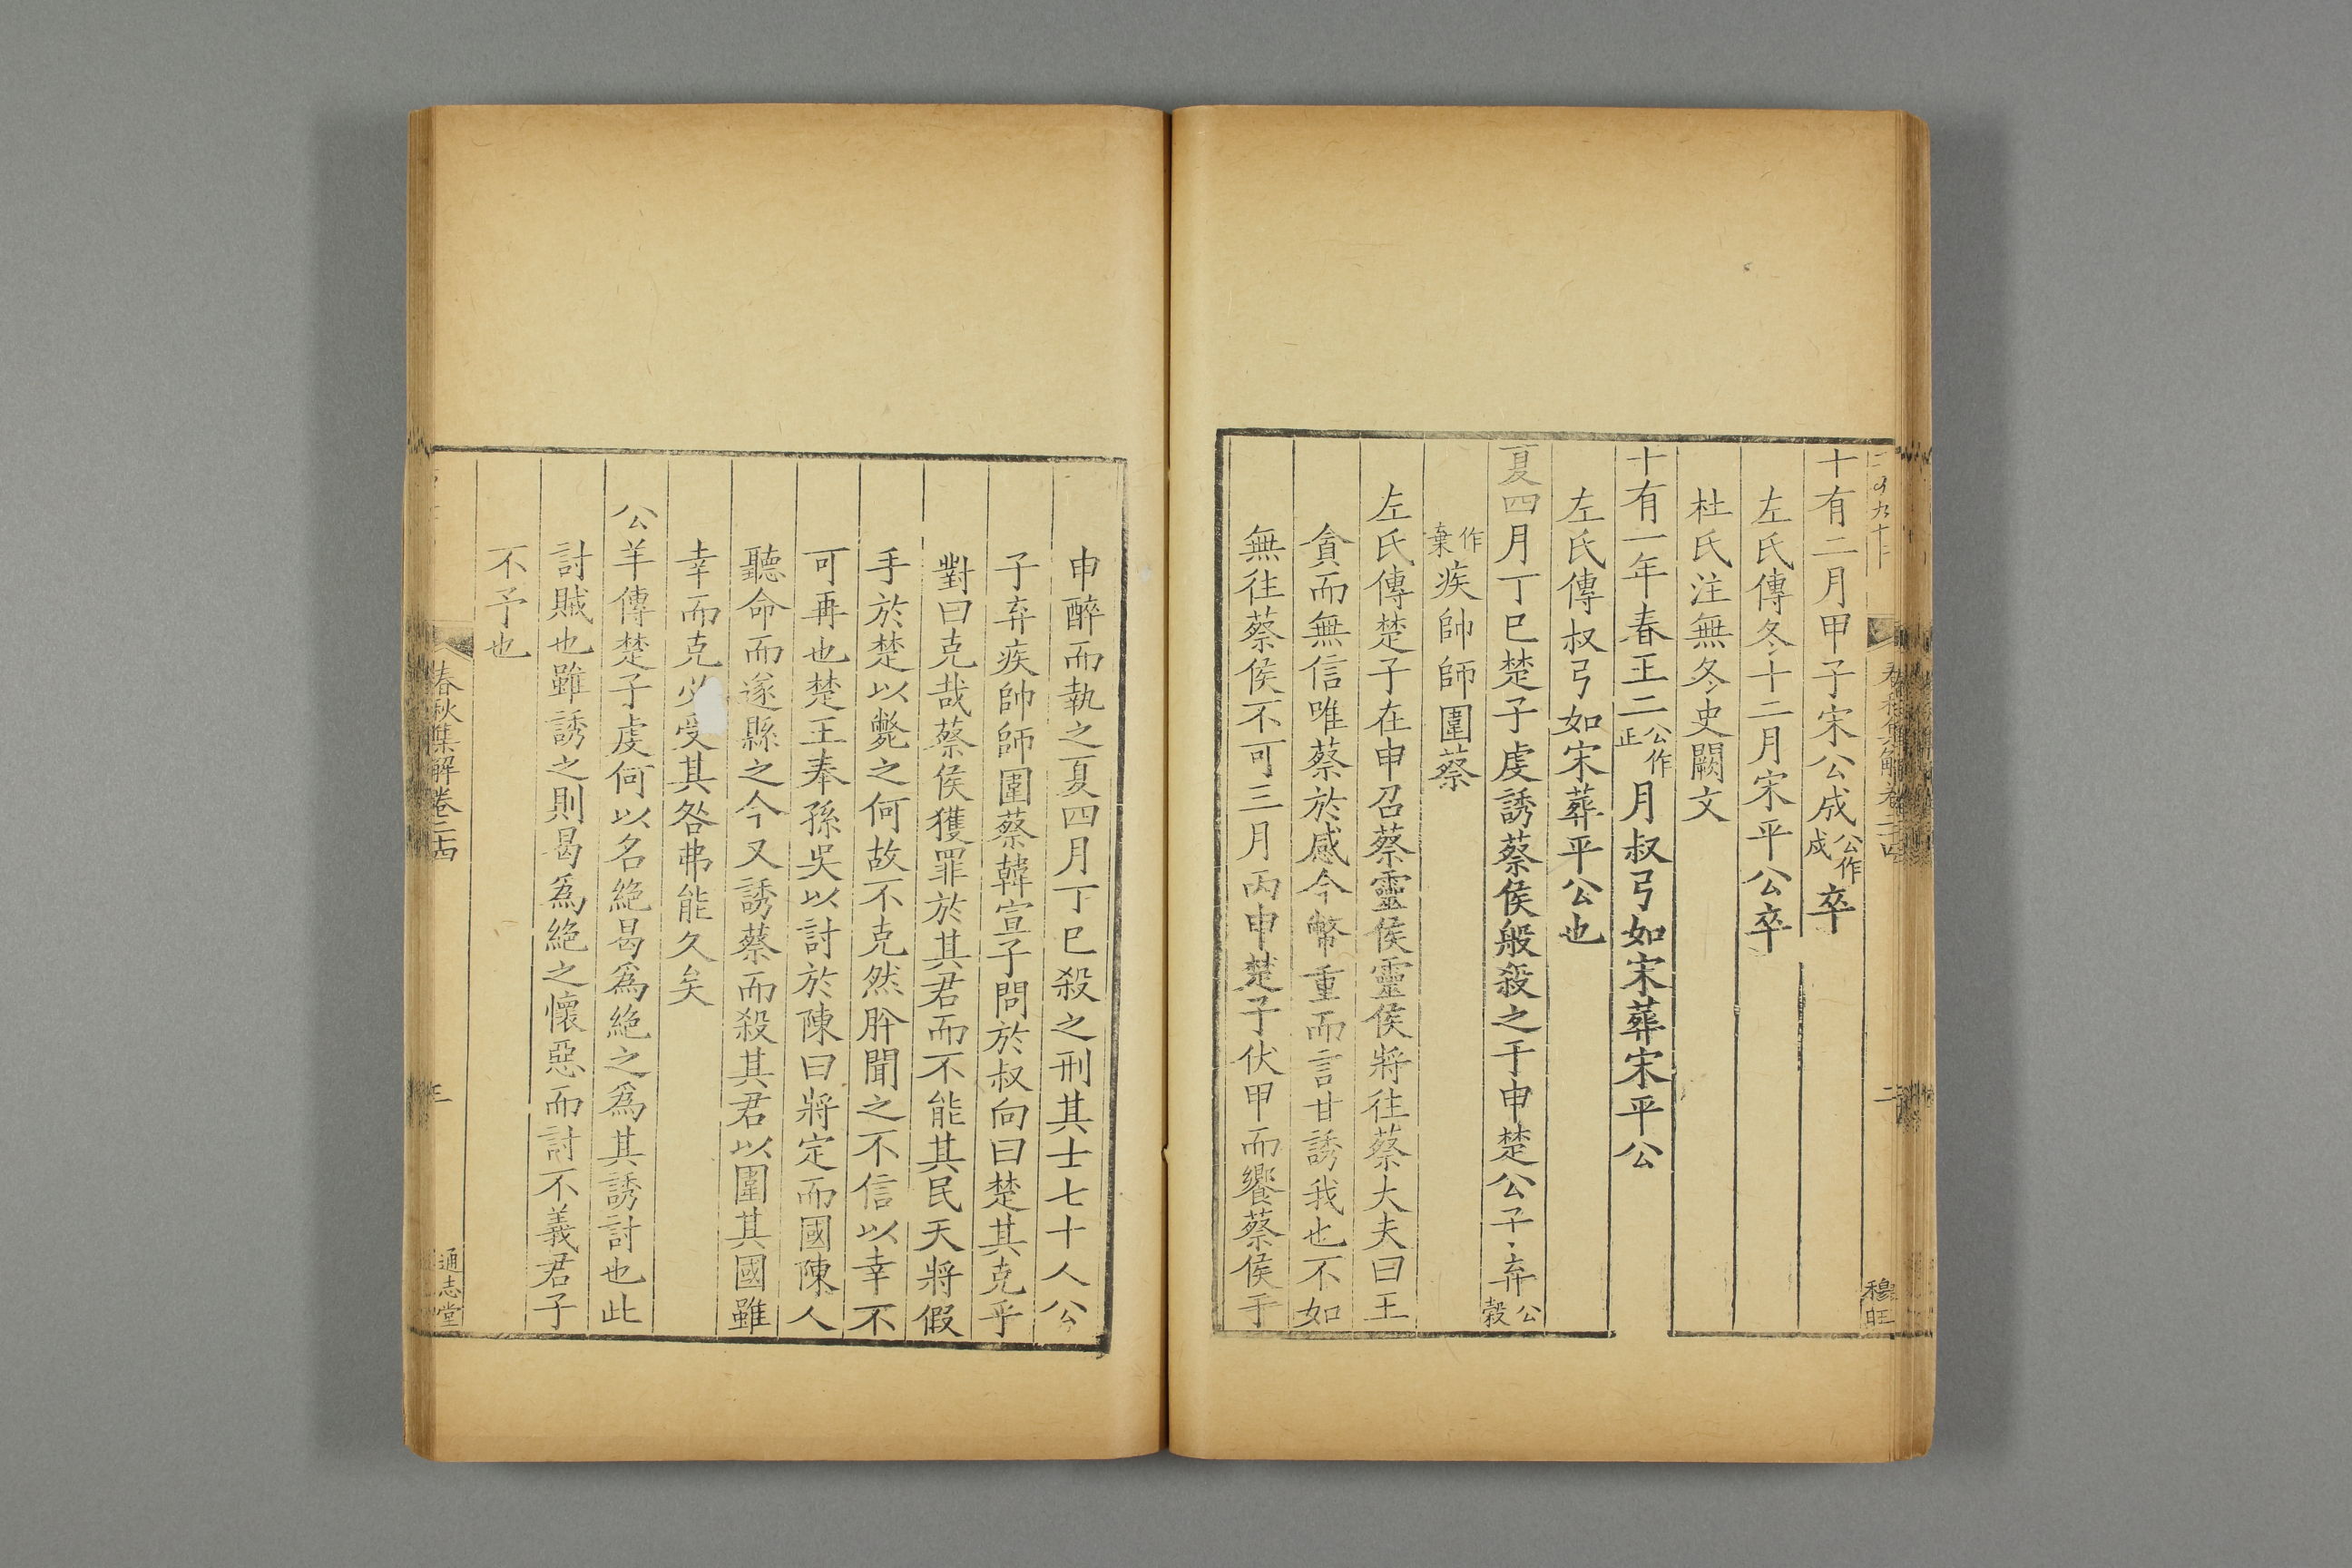 春秋集解卷二十四
二
穆旺
十有二月甲子宋公成公作戌卒
左氏傳冬十二月宋平公卒
杜氏注無冬史闕文
十有一年春王二公作正月叔弓如宋葬宋平公
左氏傳叔弓如宋葬平公也
夏四月丁巳楚子虔誘蔡侯般殺之于申楚公子弃公穀
作棄疾帥師圍蔡
左氏傳楚子在申召蔡靈侯靈侯將往蔡大夫曰王
貪而無信唯蔡於感今幣重而言甘誘我也不如
無往蔡侯不可三月丙申楚子伏甲而饗蔡侯于
申醉而執之夏四月丁巳殺之刑其士七十人公
子弃疾帥師圍蔡韓宣子問於叔向曰楚其克乎
對曰克哉蔡侯獲罪於其君而不能其民天將假
手於楚以斃之何故不克然肸聞之不信以幸不
可再也楚王奉孫吳以討於陳曰將定而國陳人
聽命而遂縣之今又誘蔡而殺其君以圍其國雖
幸而克必受其咎弗能久矣
公羊傳楚子虔何以名絕曷爲絕之爲其誘討也此
討賊也雖誘之則曷爲絕之懷惡而討不義君子
不予也
春秋集解卷二十四
三
通志堂